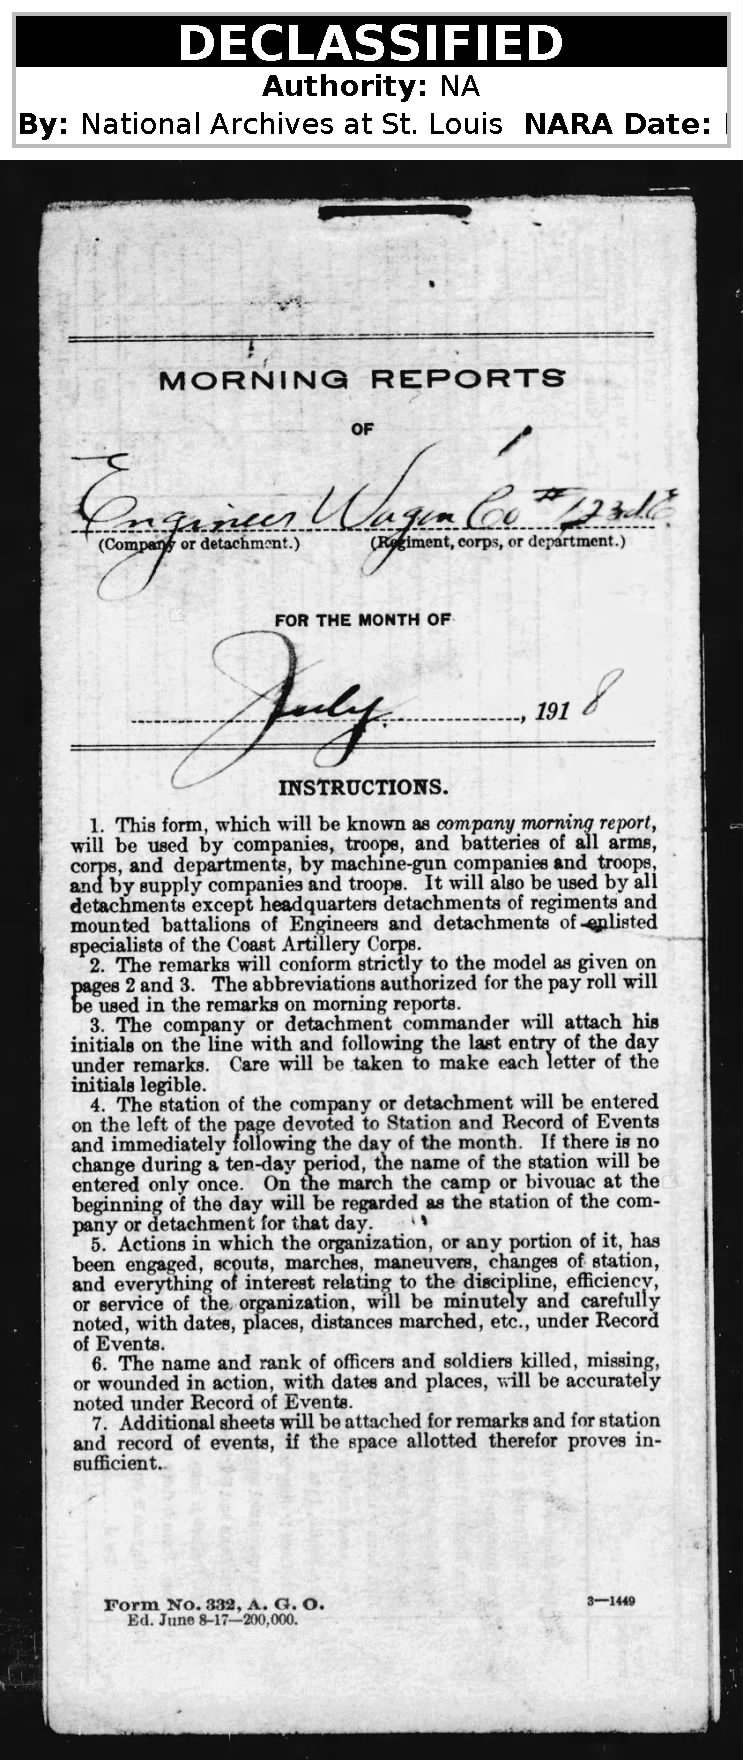 DECLASSIFIED
Authority: NA
By: National Archives at St. Louis NARA Date:
MORNING REPORTS
OF
Engineer Wagon Co #1 23d E.
(Company or detachment.) (Regiment, corps, or department.)
FOR THE MONTH OF
July, 1918
INSTRUCTIONS.
1. This form, which will be known as company morning report,
will be used by companies, troops, and batteries of all arms,
corps, and departments, by machine-gun companies and troops,
and by supply companies and troops. It will also be used by all
detachments except headquarters detachments of regiments and
mounted battalions of Engineers and detachments of enlisted
specialists of the Coast Artillery Corps.
2. The remarks will conform strictly to the model as given on
pages 2 and 3. The abbreviations authorized for the pay roll will
be used in the remarks on morning reports.
3. The company or detachment commander will attach his
initials on the line with and following the last entry of the day
under remarks. Care will be taken to make each letter of the
initials legible.
4. The station of the company or detachment will be entered
on the left of the page devoted to Station and Record of Events
and immediately following the day of the month. If there is no
change during a ten-day period, the name of the station will be
entered only once. On the march the camp or bivouac at the
beginning of the day will be regarded as the station of the com-
pany or detachment for that day.
5. Actions in which the organization, or any portion of it, has
been engaged, scouts, marches, maneuvers, changes of station,
and everything of interest relating to the discipline, efficiency,
or service of the organization, will be minutely and carefully
noted, with dates, places, distances marched, etc., under Record
of Events.
6. The name and rank of officers and soldiers killed, missing,
or wounded in action, with dates and places, will be accurately
noted under Record of Events.
7. Additional sheets will be attached for remarks and for station
and record of events, if the space allotted therefor proves in-
sufficient.
Form No. 332, A. G. O. 3—1449
Ed. June 8-17—200,000.